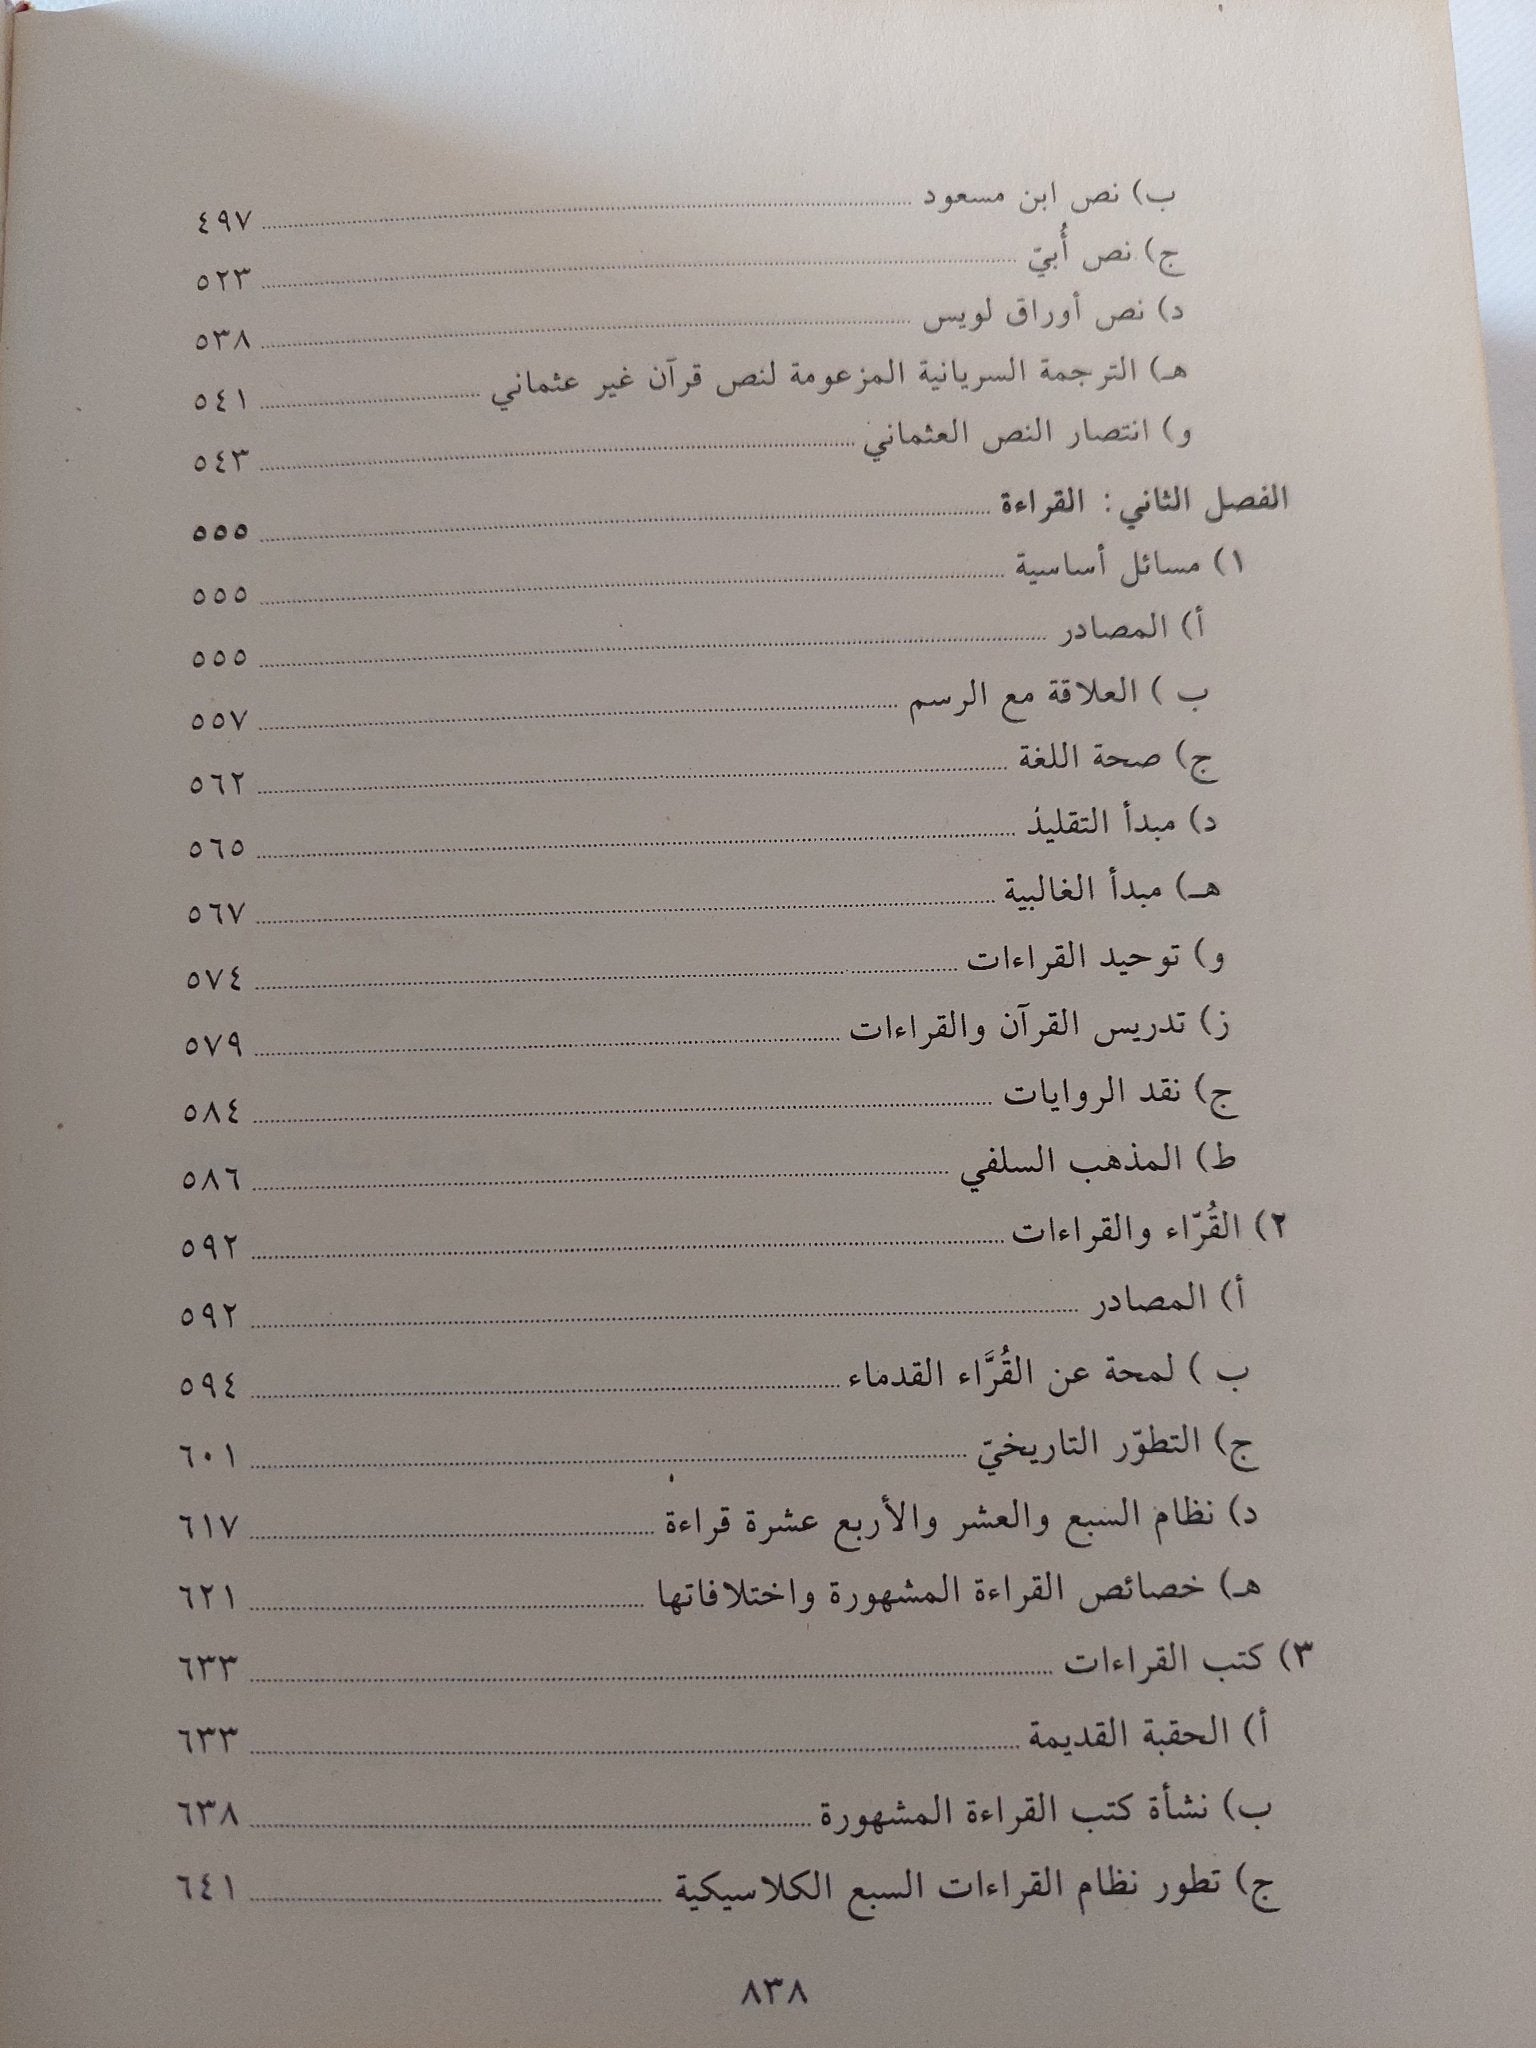 ب) نص ابن مسعود ........ ٤٩٧
ج) نص أُبيّ ........ ٥٢٣
د) نص أوراق لويس ........ ٥٣٨
هـ) الترجمة السريانية المزعومة لنص قرآن غير عثماني ........ ٥٤١
و) انتصار النص العثماني ........ ٥٤٣
الفصل الثاني: القراءة ........ ٥٥٥
١) مسائل أساسية ........ ٥٥٥
أ) المصادر ........ ٥٥٥
ب ) العلاقة مع الرسم ........ ٥٥٧
ج) صحة اللغة ........ ٥٦٢
د) مبدأ التقليذ ........ ٥٦٥
هـ) مبدأ الغالبية ........ ٥٦٧
و) توحيد القراءات ........ ٥٧٤
ز) تدريس القرآن والقراءات ........ ٥٧٩
ج) نقد الروايات ........ ٥٨٤
ط) المذهب السلفي ........ ٥٨٦
٢) القُرّاء والقراءات ........ ٥٩٢
أ) المصادر ........ ٥٩٢
ب ) لمحة عن القُرَّاء القدماء ........ ٥٩٤
ج) التطوّر التاريخيّ ........ ٦٠١
د) نظام السبع والعشر والأربع عشرة قراءة ........ ٦١٧
هـ) خصائص القراءة المشهورة واختلافاتها ........ ٦٢١
٣) كتب القراءات ........ ٦٣٣
أ) الحقبة القديمة ........ ٦٣٣
ب) نشأة كتب القراءة المشهورة ........ ٦٣٨
ج) تطور نظام القراءات السبع الكلاسيكية ........ ٦٤١
٨٣٨